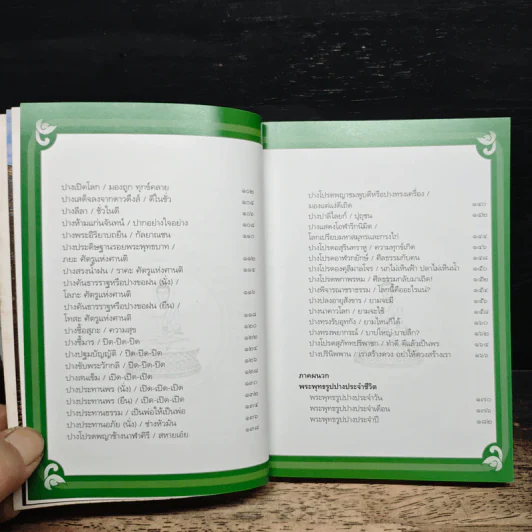 ปางเปิดโลก / มองถูก ทุกข์คลาย ๑๐๒
ปางเสด็จลงจากดาวดึงส์ / ดีในชั่ว ๑๐๔
ปางลีลา / ชั่วในดี ๑๐๖
ปางห้ามแก่นจันทน์ / ปากอย่างใจอย่าง ๑๐๘
ปางพระอิริยาบถยืน / กัลยาณชน ๑๑๐
ปางประดิษฐานรอยพระพุทธบาท /
ภยะ ศัตรูแห่งศานติ ๑๑๒
ปางสรงน้ำฝน / ราคะ ศัตรูแห่งศานติ ๑๑๔
ปางคันธารราฐหรือปางขอฝน (นั่ง) /
โลภะ ศัตรูแห่งศานติ
ปางคันธารราฐหรือปางขอฝน (ยืน) /
โทสะ ศัตรูแห่งศานติ
ปางชี้อสุภะ / ความสุข
ปางชี้มาร / ปิด-ปิด-ปิด
ปางปฐมบัญญัติ / ปิด-ปิด-ปิด
ปางขับพระวักกลิ / ปิด-ปิด-ปิด
ปางสนเข็ม / เปิด-เปิด-เปิด
ปางประทานพร (นั่ง) / เปิด-เปิด-เปิด
ปางประทานพร (ยืน) / เปิด-เปิด-เปิด
ปางประทานธรรม / เป็นพ่อให้เป็นพ่อ
ปางประทานอภัย (นั่ง) / ช่างหัวมัน
ปางโปรดพญาช้างนาฬาคิรี / สหายเอ๋ย
ปางโปรดพญาชมพูบดีหรือปางทรงเครื่อง /
มองแต่แง่ดีเถิด ๑๔๐
ปางปาลิไลยก์ / ปุถุชน ๑๔๒
ปางแสดงโอฬาริกนิมิต /
โลกเปรียบมหาสมุทรและกรงไก่
ปางโปรดอสุรินทราหู / ความทุกข์เกิด ๑๔๖
ปางโปรดอาฬวกยักษ์ / ศีลธรรมกับคน ๑๔๘
ปางโปรดองคุลิมาลโจร / นกไม่เห็นฟ้า ปลาไม่เห็นน้ำ ๑๕๐
ปางโปรดพกาพรหม / ศีลธรรมกลับมาเถิด! ๑๕๒
ปางพิจารณาชราธรรม / โลกนี้คืออะไรแน่? ๑๕๔
ปางปลงอายุสังขาร / ยามจะมี ๑๕๖
ปางนาคาวโลก / ยามจะใช้ ๑๕๘
ปางทรงรับอุทกัง / ยามไหนก็ได้ ๑๖๐
ปางทรงพยากรณ์ / บาปใหญ่-บาปลึก? ๑๖๒
ปางโปรดสุภัททปริพาชก / ทำดี-ดีแล้วเป็นพร ๑๖๔
ปางปรินิพพาน / เราสร้างดวง อย่าให้ดวงสร้างเรา ๑๖๖
ภาคผนวก
พระพุทธรูปปางประจำชีวิต
พระพุทธรูปปางประจำวัน ๑๗๐
พระพุทธรูปปางประจำเดือน ๑๗๖
พระพุทธรูปปางประจำปี ๑๘๒